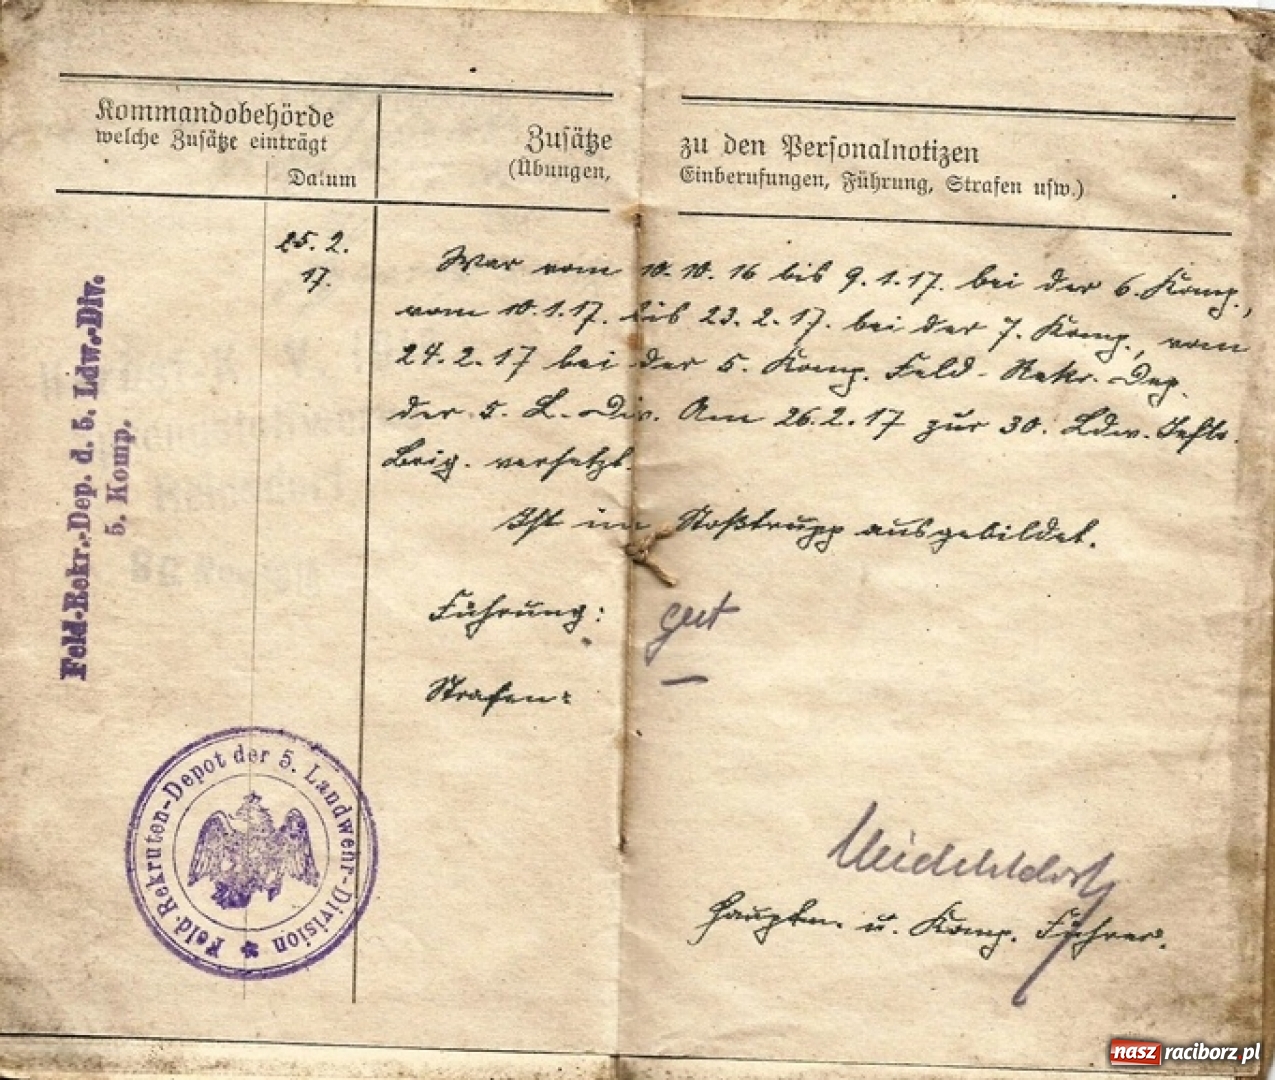 Kommandobehörde
welche Zusätze einträgt
Datum
Zusätze zu den Personalnotizen
(Übungen, Einberufungen, Führung, Strafen usw.)
25. 2.
17.
War vom 10.10.16 bis 9.1.17. bei der 6. Komp.,
vom 10.1.17. bis 23.2.17. bei der 7. Komp., vom
24.2.17 bei der 5. Komp. Feld-Rekr.-Dep.
der 5. L.-Div. Am 26.2.17 zur 30. Ldw. Inftr.
Brig. versetzt.
Ist im Stoßtrupp ausgebildet.
Führung: gut
Strafen: —
Hauptm. u. Komp. Führer.
Feld-Rekr.-Dep. d. 5. Ldw.-Div.
5. Komp.
Feld-Rekruten-Depot der 5. Landwehr-Division
nasz raciborz.pl